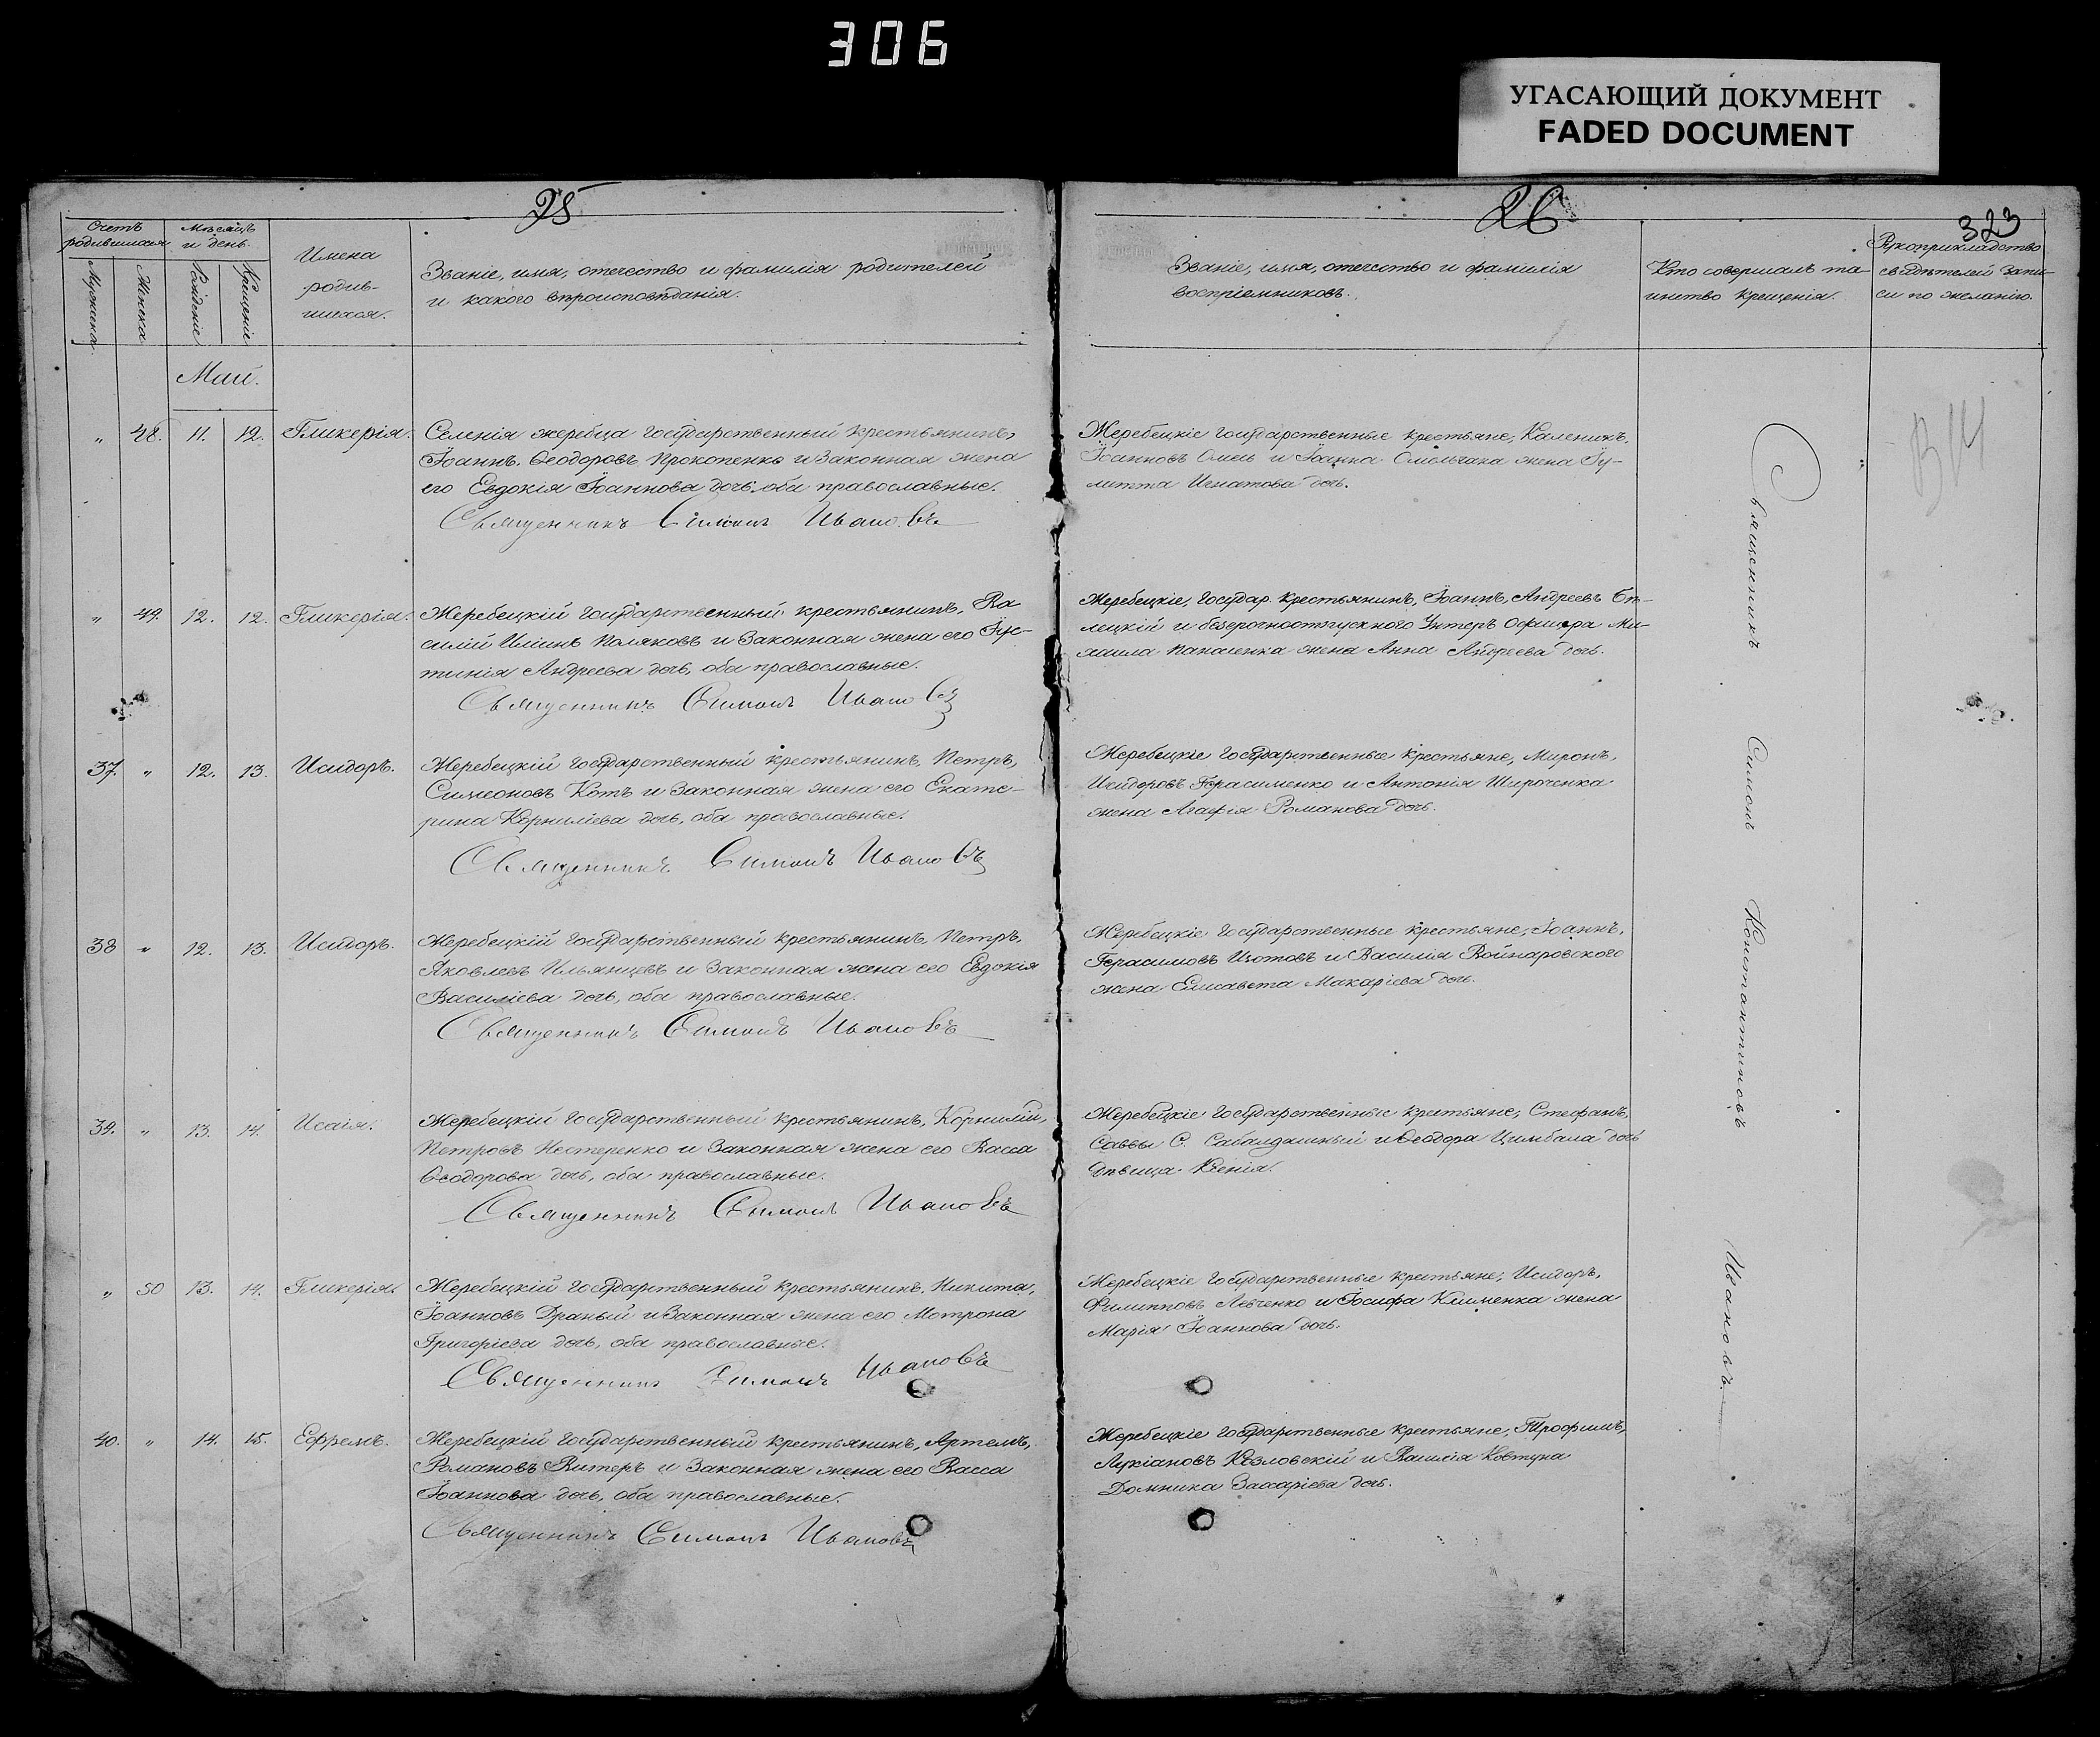 306
УГАСАЮЩИЙ ДОКУМЕНТ
FADED DOCUMENT
25
Счетъ родившихся
Мужеска
Женска
Мѣсяцъ и день
Рожденіе
Крещеніе
Имена
родив-
шихся.
Званіе, имя, отечество и фамилія родителей
и какого вѣроисповѣданія.
Май.
" 48. 11. 12. Гликерія.
Селенія жеребца государственный крестьянинъ,
Іоаннъ, Ѳеодоровъ Прокопенко и законная жена
его Евдокія Іоаннова дочь, оба православные.
Священникъ Симонъ Ивановъ
" 49. 12. 12. Гликерія.
Жеребецкій государственный крестьянинъ, Ва
силій Ильинъ Поляковъ и законная жена его Іус-
тинія Андреева дочь, оба православные.
Священникъ Симонъ Ивановъ
37. " 12. 13. Исидоръ.
Жеребецкій государственный крестьянинъ, Петръ,
Симеоновъ Котъ и законная жена его Екате-
рина Корниліева дочь, оба православные.
Священникъ Симонъ Ивановъ
38 " 12. 13. Исидоръ.
Жеребецкій государственный крестьянинъ, Петръ,
Яковлевъ Ильянцевъ и законная жена его Евдокія
Василіева дочь, оба православные.
Священникъ Симонъ Ивановъ
39. " 13. 14. Исаія.
Жеребецкій государственный крестьянинъ, Корнилій,
Петровъ Нестеренко и законная жена его Васса
Ѳеодорова дочь, оба православные.
Священникъ Симонъ Ивановъ
" 50 13. 14. Гликерія.
Жеребецкій государственный крестьянинъ, Никита,
Іоанновъ Драный и законная жена его Мотрона
Григоріева дочь, оба православные.
Священникъ Симонъ Ивановъ
40. " 14. 15. Ефремъ.
Жеребецкій государственный крестьянинъ, Артемъ,
Романовъ Витеръ и законная жена его Васса
Іоаннова дочь, оба православные.
Священникъ Симонъ Ивановъ
26
323
Званіе, имя, отечество и фамилія
воспріемниковъ.
Кто совершалъ та-
инство крещенія.
Рукоприкладство
свидѣтелей запи-
си по желанію.
Жеребецкіе государственные крестьяне, Каленикъ,
Іоанновъ Омель и Іоанна Омельчака жена Іу-
литта Игнатова дочь.
Жеребецкіе, государ. крестьянинъ, Іоаннъ, Андреевъ Бѣ-
лецкій и безсрочноотпускного Унтеръ Офицера Ми-
хаила Панасенка жена Анна Андреева дочь.
Жеребецкіе государственные крестьяне, Миронъ,
Исидоровъ Герасименко и Антонія Широченка
жена Агафія Романова дочь.
Жеребецкіе государственные крестьяне, Іоаннъ,
Герасимовъ Изотовъ и Василія Войнаровского
жена Елисавета Макаріева дочь.
Жеребецкіе государственные крестьяне, Стефанъ,
Саввы С. Сабалдашный и Ѳеодора Цимбала дочь
дѣвица Ксенія.
Жеребецкіе государственные крестьяне, Исидоръ,
Филипповъ Левченко и Іосифа Клименка жена
Марія Іоаннова дочь.
Жеребецкіе государственные крестьяне, Трофимъ,
Лукіановъ Козловскій и Василія Ковтуна
Домника Заxаріева дочь.
Священникъ Симонъ Константиновъ Ивановъ.